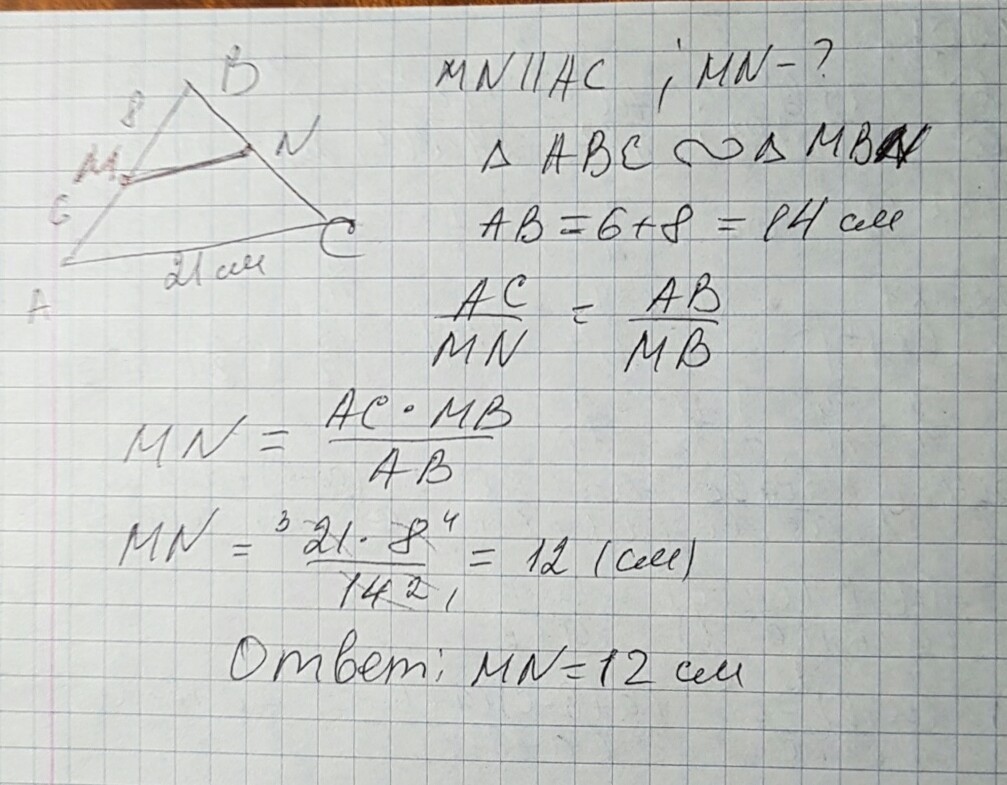 B
8
M
N
6
C
21 см
A
MN||AC ; MN-?
Δ ABC ∾ Δ MBN
AB = 6+8 = 14 см
AC/MN = AB/MB
MN = AC·MB/AB
MN = ³21·8⁴/14 2 1 = 12 (см)
Ответ: MN=12 см